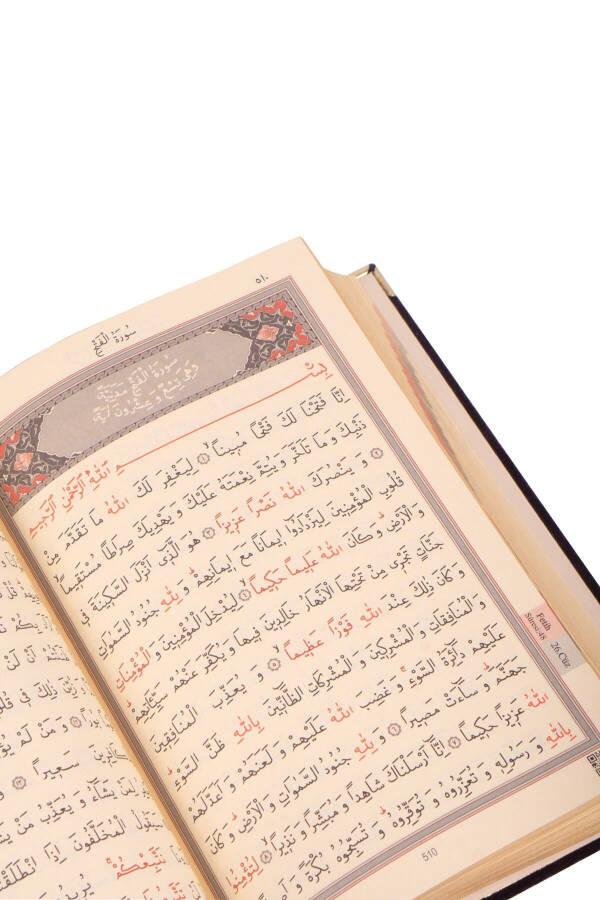 ٥١٠
سُورَةُ الْفَتْحِ
سُورَةُ الْفَتْحِ مَدَنِيَّةٌ
وَهِيَ تِسْعٌ وَعِشْرُونَ اٰيَةً
بِسْمِ اللّٰهِ الرَّحْمٰنِ الرَّحِيمِ
اِنَّا فَتَحْنَا لَكَ فَتْحًا مُبِينًا ﴿١﴾ لِيَغْفِرَ لَكَ اللّٰهُ مَا تَقَدَّمَ مِنْ
ذَنْبِكَ وَمَا تَاَخَّرَ وَيُتِمَّ نِعْمَتَهُ عَلَيْكَ وَيَهْدِيَكَ صِرَاطًا مُسْتَقِيمًا ﴿٢﴾
وَيَنْصُرَكَ اللّٰهُ نَصْرًا عَزِيزًا ﴿٣﴾ هُوَ الَّذِٓي اَنْزَلَ السَّكِينَةَ فِي
قُلُوبِ الْمُؤْمِنِينَ لِيَزْدَادُٓوا اِيمَانًا مَعَ اِيمَانِهِمْ وَلِلّٰهِ جُنُودُ السَّمٰوَاتِ
وَالْاَرْضِ وَكَانَ اللّٰهُ عَلِيمًا حَكِيمًا ﴿٤﴾ لِيُدْخِلَ الْمُؤْمِنِينَ وَالْمُؤْمِنَاتِ
جَنَّاتٍ تَجْرِي مِنْ تَحْتِهَا الْاَنْهَارُ خَالِدِينَ فِيهَا وَيُكَفِّرَ عَنْهُمْ سَيِّـَٔاتِهِمْ
وَكَانَ ذٰلِكَ عِنْدَ اللّٰهِ فَوْزًا عَظِيمًا ﴿٥﴾ وَيُعَذِّبَ الْمُنَافِقِينَ
وَالْمُنَافِقَاتِ وَالْمُشْرِكِينَ وَالْمُشْرِكَاتِ الظَّٓانِّينَ بِاللّٰهِ ظَنَّ السَّوْءِ
عَلَيْهِمْ دَٓائِرَةُ السَّوْءِ وَغَضِبَ اللّٰهُ عَلَيْهِمْ وَلَعَنَهُمْ وَاَعَدَّ لَهُمْ
جَهَنَّمَ وَسَٓاءَتْ مَصِيرًا ﴿٦﴾ وَلِلّٰهِ جُنُودُ السَّمٰوَاتِ وَالْاَرْضِ وَكَانَ
اللّٰهُ عَزِيزًا حَكِيمًا ﴿٧﴾ اِنَّٓا اَرْسَلْنَاكَ شَاهِدًا وَمُبَشِّرًا وَنَذِيرًا ﴿٨﴾ لِتُؤْمِنُوا
بِاللّٰهِ وَرَسُولِهِ وَتُعَزِّرُوهُ وَتُوَقِّرُوهُ وَتُسَبِّحُوهُ بُكْرَةً
510
Fetih
Sûresi-48
26.Cüz
ذٰلِكَ فِي
وَمَنْ لَمْ
سَعِيرًا ﴿١٣﴾
لِمَنْ يَشَٓاءُ وَيُعَذِّبُ مَنْ
الْمُخَلَّفُونَ اِذَا انْطَلَقْتُمْ
نَتَّبِعْكُمْ